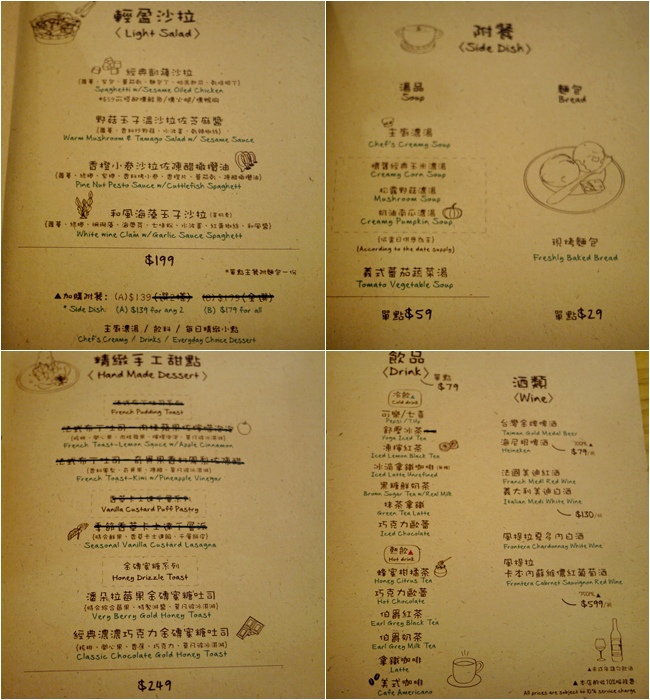 輕盈沙拉
〈Light Salad〉
經典凱薩沙拉
Spaghetti w/Sesame Oiled Chicken
野菇玉子溫沙拉佐芝麻醬
Warm Mushroom & Tamago Salad w/ Sesame Sauce
香橙小卷沙拉佐凍醋橄欖油
Pine Nut Pesto Sauce w/Cuttlefish Spaghett
和風海藻玉子沙拉
White wine Clam w/Garlic Sauce Spaghett
$199
*單點主餐附麵包一份
▲加購附餐: (A)$139(選2樣) (B)$179(全選)
* Side Dish: (A) $139 for any 2 (B) $179 for all
主廚濃湯 / 飲料 / 每日精緻小點
Chef's Creamy / Drinks / Everyday Choice Dessert
附餐
〈Side Dish〉
湯品
Soup
主廚濃湯
Chef's Creamy Soup
懷舊經典玉米濃湯
Creamy Corn Soup
松露野菇濃湯
Mushroom Soup
奶油南瓜濃湯
Creamy Pumpkin Soup
(依當日供應為主)
(According to the date supply)
義式番茄蔬菜湯
Tomato Vegetable Soup
單點$59
麵包
Bread
現烤麵包
Freshly Baked Bread
單點$29
精緻手工甜點
〈Hand Made Dessert〉
French Pudding Toast
French Toast-Lemon Sauce w/Apple Cinnamon
French Toast-Kiwi w/Pineapple Vinegar
Vanilla Custard Puff Pastry
季節香草卡士達千層派
Seasonal Vanilla Custard Lasagna
金磚蜜糖系列
Honey Drizzle Toast
潘朵拉莓果金磚蜜糖吐司
Very Berry Gold Honey Toast
經典濃濃巧克力金磚蜜糖吐司
Classic Chocolate Gold Honey Toast
$249
飲品
〈Drink〉
單點
$79
冷飲▲
Cold drink
可樂/七喜
Pepsi / 7 Up
彩璽冰茶
Yoga Iced Tea
凍檸紅茶
Iced Lemon Black Tea
冰滴拿鐵咖啡
Iced Latte Unrefined
黑糖鮮奶茶
Brown Sugar Tea w/Real Milk
抹茶拿鐵
Green Tea Latte
巧克力歐蕾
Iced Chocolate
熱飲▲
Hot drink
蜂蜜柑橘茶
Honey Citrus Tea
巧克力歐蕾
Hot Chocolate
伯爵紅茶
Earl Grey Black Tea
伯爵奶茶
Earl Grey Milk Tea
拿鐵咖啡
Latte
美式咖啡
Cafe Americano
酒類
〈Wine〉
台灣金牌啤酒
Taiwan Gold Medal Beer
海尼根啤酒
Heineken
$79/杯
法國美迪紅酒
French Medi Red Wine
義大利美迪白酒
Italian Medi White Wine
$130/杯
風提拉夏多內白酒
Frontera Chardonnay White Wine
風提拉
卡本內蘇維濃紅葡萄酒
Frontera Cabernet Sauvignon Red Wine
$599/瓶
▲本店酌收10%服務費
All prices are subject to 10% service charge